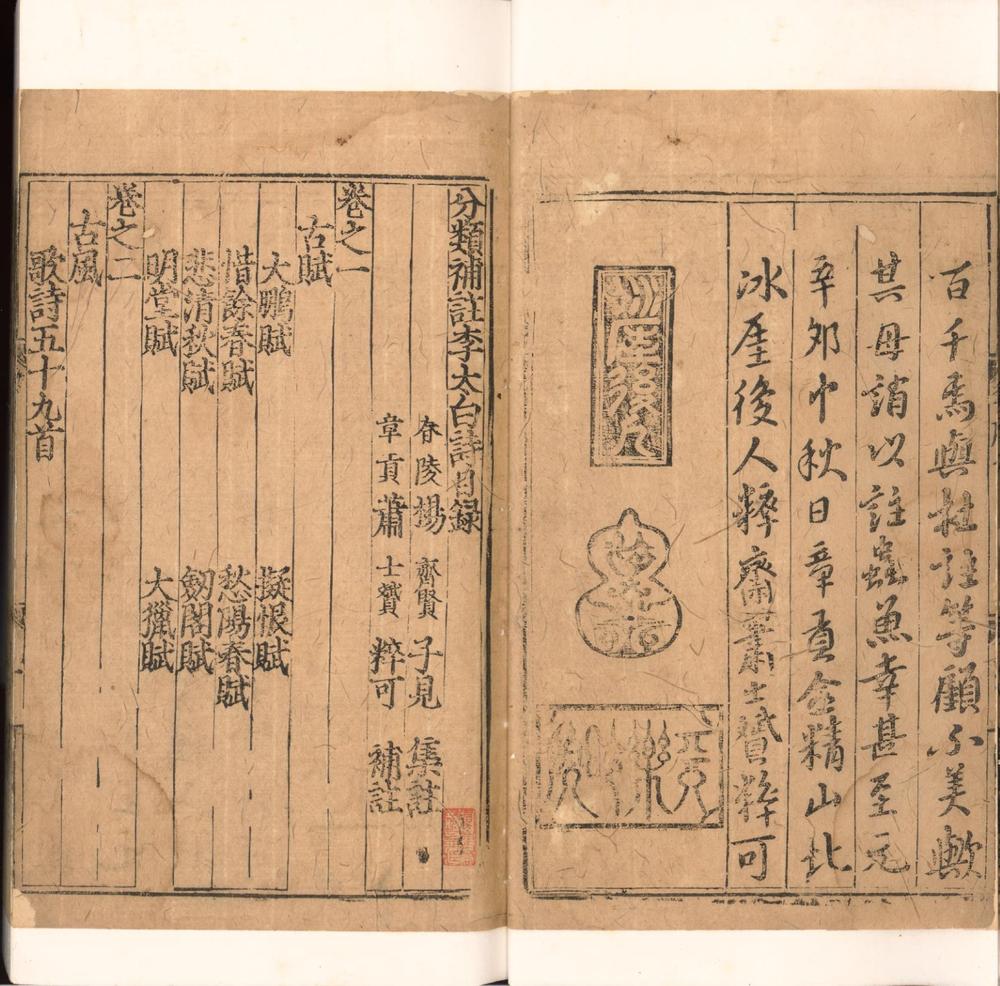 百千焉與杜註等顧不美歟
其毋誚以註蟲魚幸甚至元
辛卯中秋日章貢金精山北
冰厓後人粹齋蕭士贇粹可
冰厓後人
粹齋
分類補註李太白詩目録
舂陵楊齊賢子見集註
章貢蕭士贇粹可補註
卷之一
古賦
大鵬賦 擬恨賦
惜餘春賦 愁陽春賦
悲清秋賦 劔閣賦
明堂賦 大獵賦
卷之二
古風
歌詩五十九首